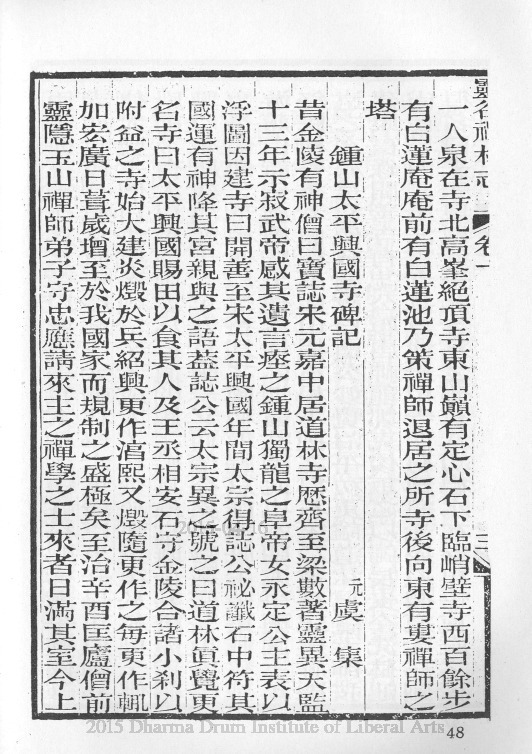 靈谷禪林志 卷一 三
一人泉在寺北高峯絕頂寺東山巔有定心石下臨峭壁寺西百餘步
有白蓮庵庵前有白蓮池乃策禪師退居之所寺後向東有婁禪師之
塔
鍾山太平興國寺碑記 元 虞集
昔金陵有神僧曰寶誌宋元嘉中居道林寺歷齊至梁數著靈異天監
十三年示寂武帝感其遺言瘞之鍾山獨龍之阜帝女永定公主表以
浮圖因建寺曰開善至宋太平興國年間太宗得誌公祕讖石中符其
國運有神降其宮親與之語葢誌公云太宗異之號之曰道林眞覺更
名寺曰太平興國賜田以食其人及王丞相安石守金陵合諸小刹以
附益之寺始大建炎燬於兵紹興更作淳熙又燬隨更作之每更作輒
加宏廣日葺歲增至於我國家而規制之盛極矣至治辛酉匡廬僧前
靈隱玉山禪師弟子守忠應請來主之禪學之士來者日滿其室今上
2015 Dharma Drum Institute of Liberal Arts
48